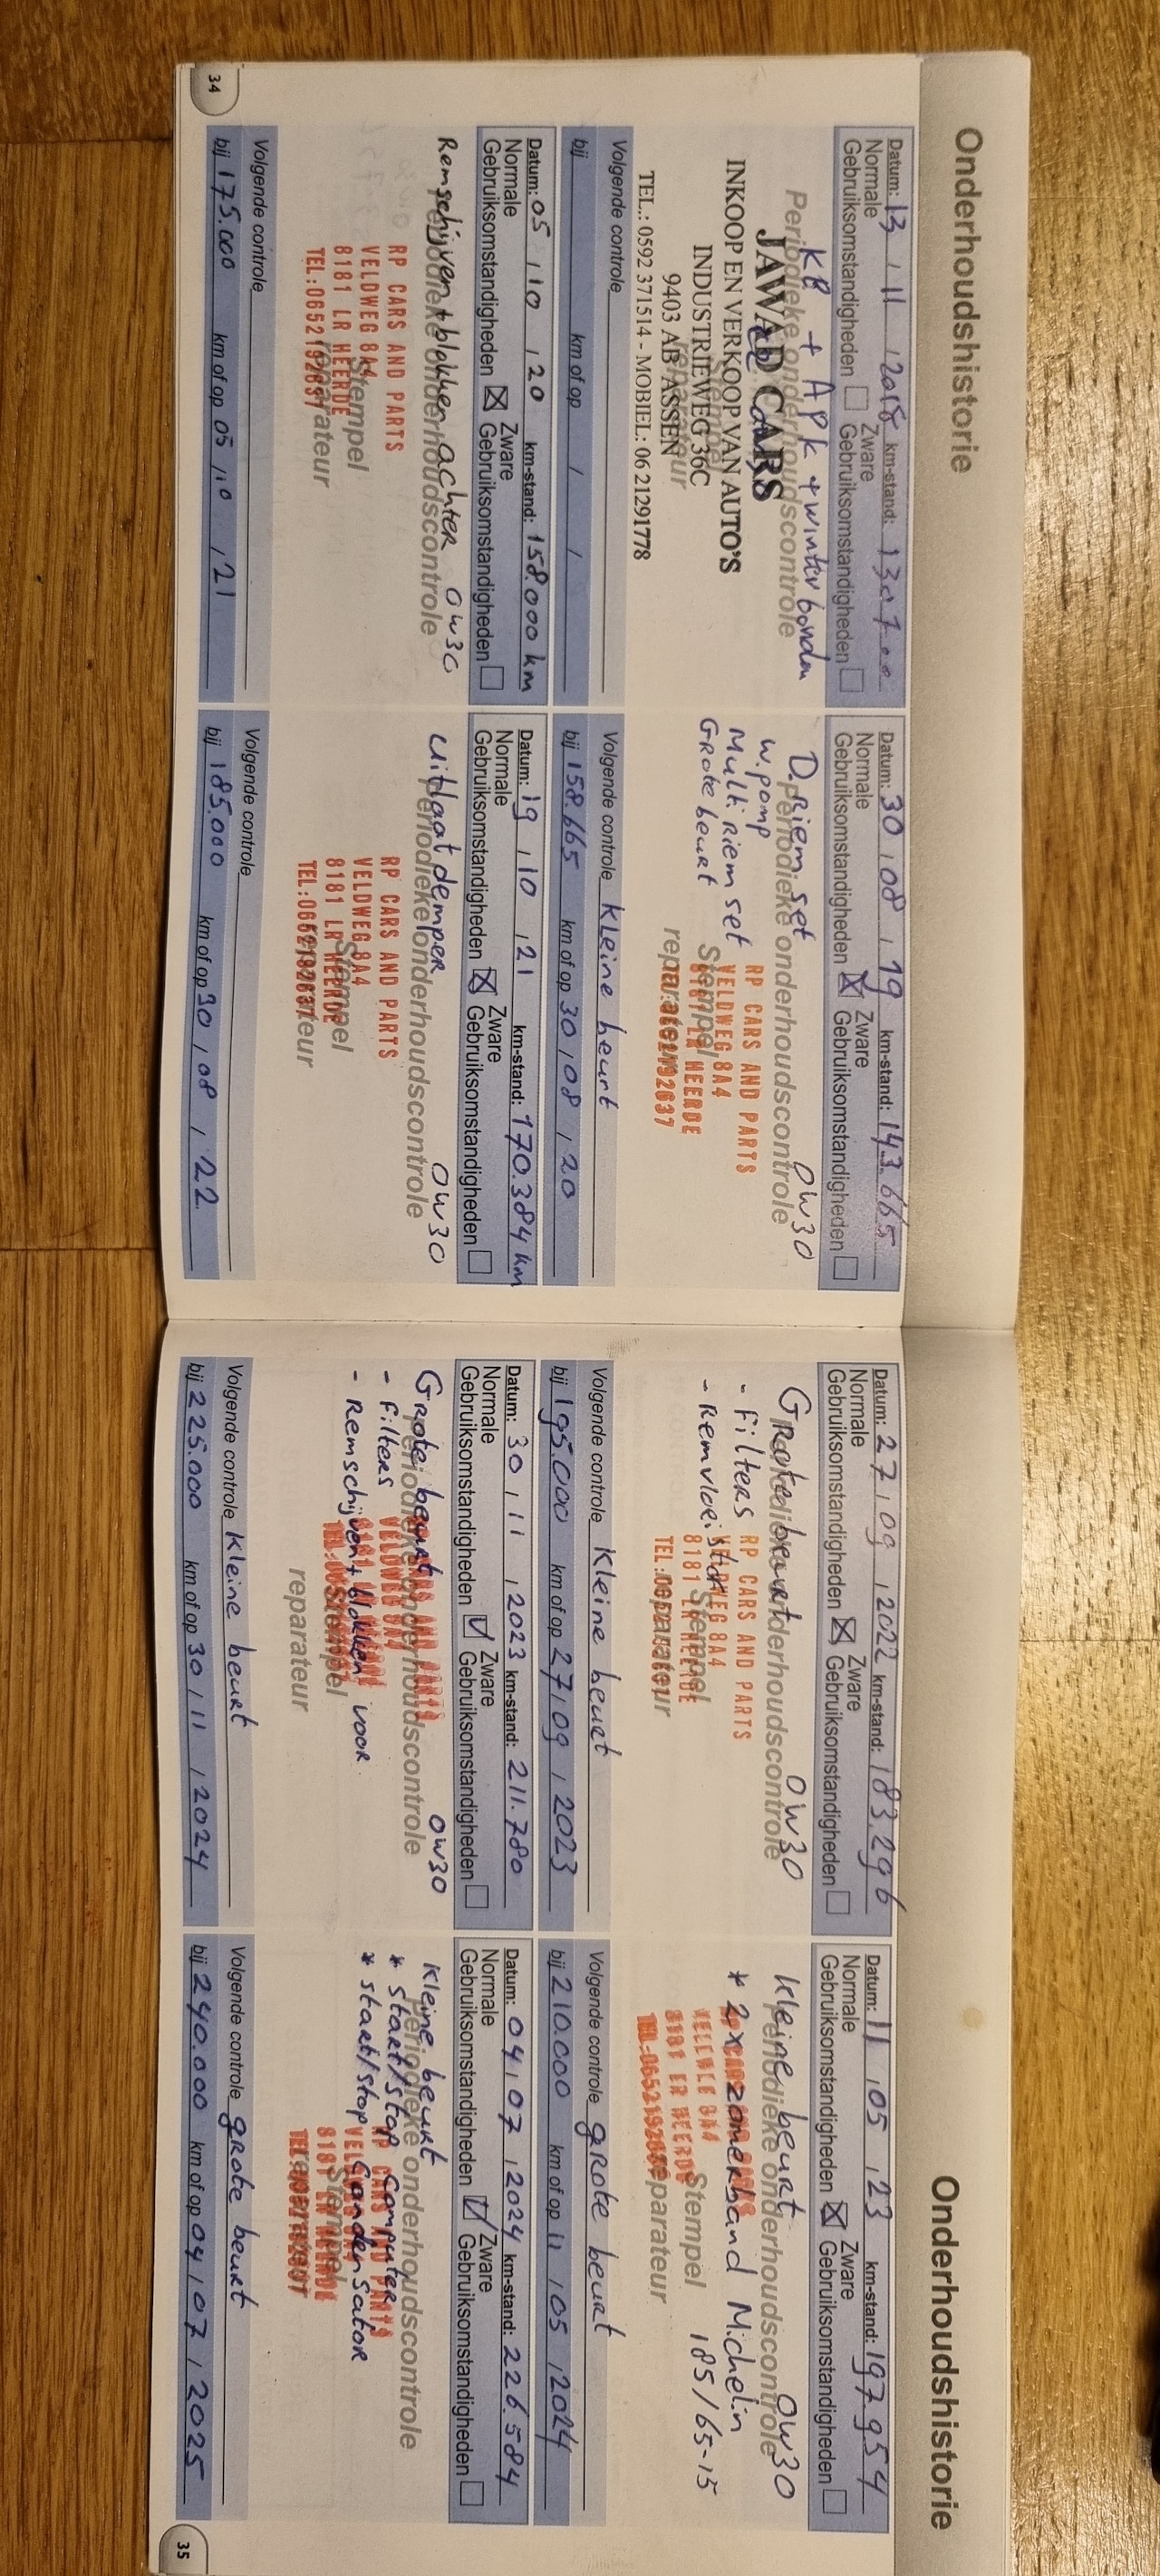 Onderhoudshistorie
Datum: 13 / 11 / 2018 km-stand: 130700
Normale Zware
Gebruiksomstandigheden Gebruiksomstandigheden
KB + APK + winterbanden
Periodieke onderhoudscontrole
JAWAD CARS
INKOOP EN VERKOOP VAN AUTO'S
Stempel
INDUSTRIEWEG 36C
reparateur
9403 AB ASSEN
TEL.: 0592 371514 - MOBIEL: 06 21291778
Volgende controle
bij km of op / /
Datum: 30 / 08 / 19 km-stand: 143.665
Normale Zware
Gebruiksomstandigheden Gebruiksomstandigheden
D.Riem set 0W30
Periodieke onderhoudscontrole
W.pomp
Multi Riem set
Grote beurt
RP CARS AND PARTS
VELDWEG 8A4
Stempel
8181 LR HEERDE
reparateur
TEL:0652192637
Volgende controle Kleine beurt
bij 158.665 km of op 30 / 08 / 20
Datum: 05 / 10 / 20 km-stand: 158.000 km
Normale Zware
Gebruiksomstandigheden Gebruiksomstandigheden
Remschijven + blokken achter 0W30
Periodieke onderhoudscontrole
RP CARS AND PARTS
VELDWEG 8A4
Stempel
8181 LR HEERDE
reparateur
TEL:0652192637
Volgende controle
bij 175.000 km of op 05 / 10 / 21
Datum: 19 / 10 / 21 km-stand: 170.384 km
Normale Zware
Gebruiksomstandigheden Gebruiksomstandigheden
Uitlaatdemper 0W30
Periodieke onderhoudscontrole
RP CARS AND PARTS
VELDWEG 8A4
Stempel
8181 LR HEERDE
reparateur
TEL:0652192637
Volgende controle
bij 185.000 km of op 30 / 08 / 22
34
Onderhoudshistorie
Datum: 27 / 09 / 2022 km-stand: 183.296
Normale Zware
Gebruiksomstandigheden Gebruiksomstandigheden
Grote beurt 0W30
Periodieke onderhoudscontrole
- Filters
- Remvloeistof
RP CARS AND PARTS
VELDWEG 8A4
Stempel
8181 LR HEERDE
reparateur
Volgende controle Kleine beurt
bij 195.000 km of op 27 / 09 / 2023
Datum: 11 / 05 / 23 km-stand: 197954
Normale Zware
Gebruiksomstandigheden Gebruiksomstandigheden
Kleine beurt 0W30
Periodieke onderhoudscontrole
* 2x zomerband Michelin
185/65-15
RP CARS AND PARTS
VELDWEG 8A4
Stempel
8181 LR HEERDE
reparateur
TEL:0652192637
Volgende controle grote beurt
bij 210.000 km of op 11 / 05 / 2024
Datum: 30 / 11 / 2023 km-stand: 211.780
Normale Zware
Gebruiksomstandigheden Gebruiksomstandigheden
Grote beurt 0W30
Periodieke onderhoudscontrole
- Filters
- Remschijven + blokken voor.
Stempel
reparateur
Volgende controle Kleine beurt
bij 225.000 km of op 30 / 11 / 2024
Datum: 04 / 07 / 2024 km-stand: 226.584
Normale Zware
Gebruiksomstandigheden Gebruiksomstandigheden
Kleine beurt
Periodieke onderhoudscontrole
* start/stop Computer
* start/stop Condensator
RP CARS AND PARTS
VELDWEG 8A4
Stempel
8181 LR HEERDE
reparateur
Volgende controle grote beurt
bij 240.000 km of op 04 / 07 / 2025
35